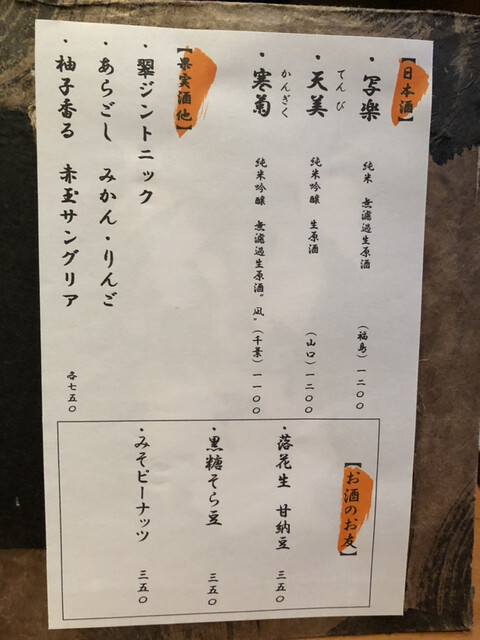 【日本酒】
・写楽 純米 無濾過生原酒 (福島) 一二〇〇
てんび
・天美 純米吟醸 生原酒 (山口) 一二〇〇
かんぎく
・寒菊 純米吟醸 無濾過生原酒“凪” (千葉) 一一〇〇
【果実酒他】
・翠ジントニック
・あらごし みかん・りんご
・柚子香る 赤玉サングリア 各七五〇
【お酒のお友】
・落花生 甘納豆 三五〇
・黒糖そら豆 三五〇
・みそピーナッツ 三五〇